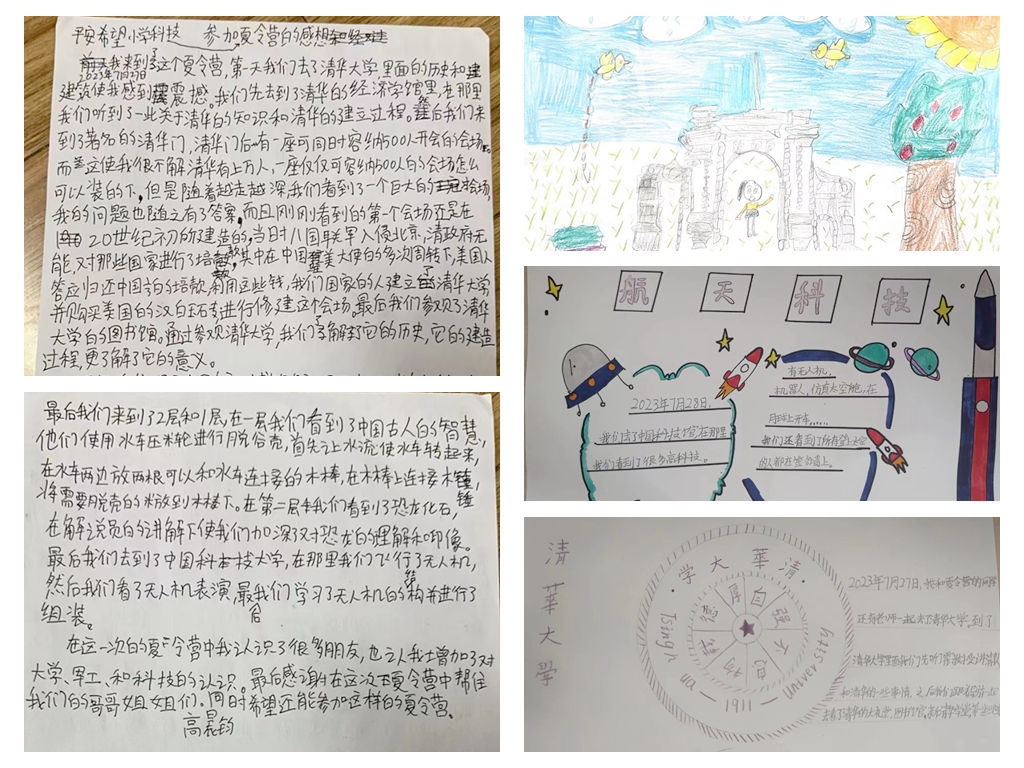 平安希望小学科技 参加夏令营的感想
我来到了这个夏令营,第一天我们去了清华大学,里面的历史和
2023年7月27日
建筑使我感到震撼。我们先去到了清华的经济学馆里,在那里
我们听到了一些关于清华的知识和清华的建立过程。然后我们来
到了著名的清华门,清华门后有一座可同时容纳500人开会的会场。
而这使我很不解清华有上万人,一座仅仅可容纳500人的会场怎么
可以装的下,但是随着越走越深我们看到了一个巨大的会场
我的问题也随之有了答案,而且刚刚看到的第一个会场还是在
20世纪初所建造的,当时八国联军入侵北京,清政府无
能,对那些国家进行了赔款,其中在中国驻美大使的多次周转下,美国人
答应归还中国部的赔款,利用这些钱,我们国家的人建立了清华大学
并购买美国的汉白玉石专进行修建这个会场。最后我们参观了清华
大学的图书馆。通过参观清华大学,我们了解到它的历史,它的建造
过程,更了解了它的意义。
最后我们来到了2层和1层,在一层我们看到了中国古人的智慧,
他们使用水车压木轮进行脱谷壳,首先让水流使水车转起来,
在水车两边放两根可以和水车连接的木棒,在木棒上连接木锤,
将需要脱壳的米放到木棰下。在第二层我们看到了恐龙化石,
在解说员的讲解下使我们加深了对恐龙的理解和印像。
最后我们去到了中国科技大学,在那里我们飞行了无人机,
然后我们看了无人机表演,最后我们学习了无人机的结构并进行了
组装。
在这一次的夏令营中我认识了很多朋友,也让我增加了对
大学、军工、和科技的认识。最后感谢在这次夏令营中帮住
我们的哥哥姐姐们。同时希望还能参加这样的夏令营。
高晨钧
航天科技
2023年7月28日,
我们去了中国科技馆,在那里
我们看到了很多高科技。
有无人机,
机器人,仿真太空舱,在
月球上开车……
我们还看到了所有登上太空
的人都在签名墙上。
清華大學
清華大学
自强不息
厚德载物
Tsinghua University
1911
2023年7月27日,我和夏令营的同学
还有老师一起来了清华大学。到了
清华大学里面我们先听了
和清华的一些事情。之后
去看了清华的大礼堂,图书馆,